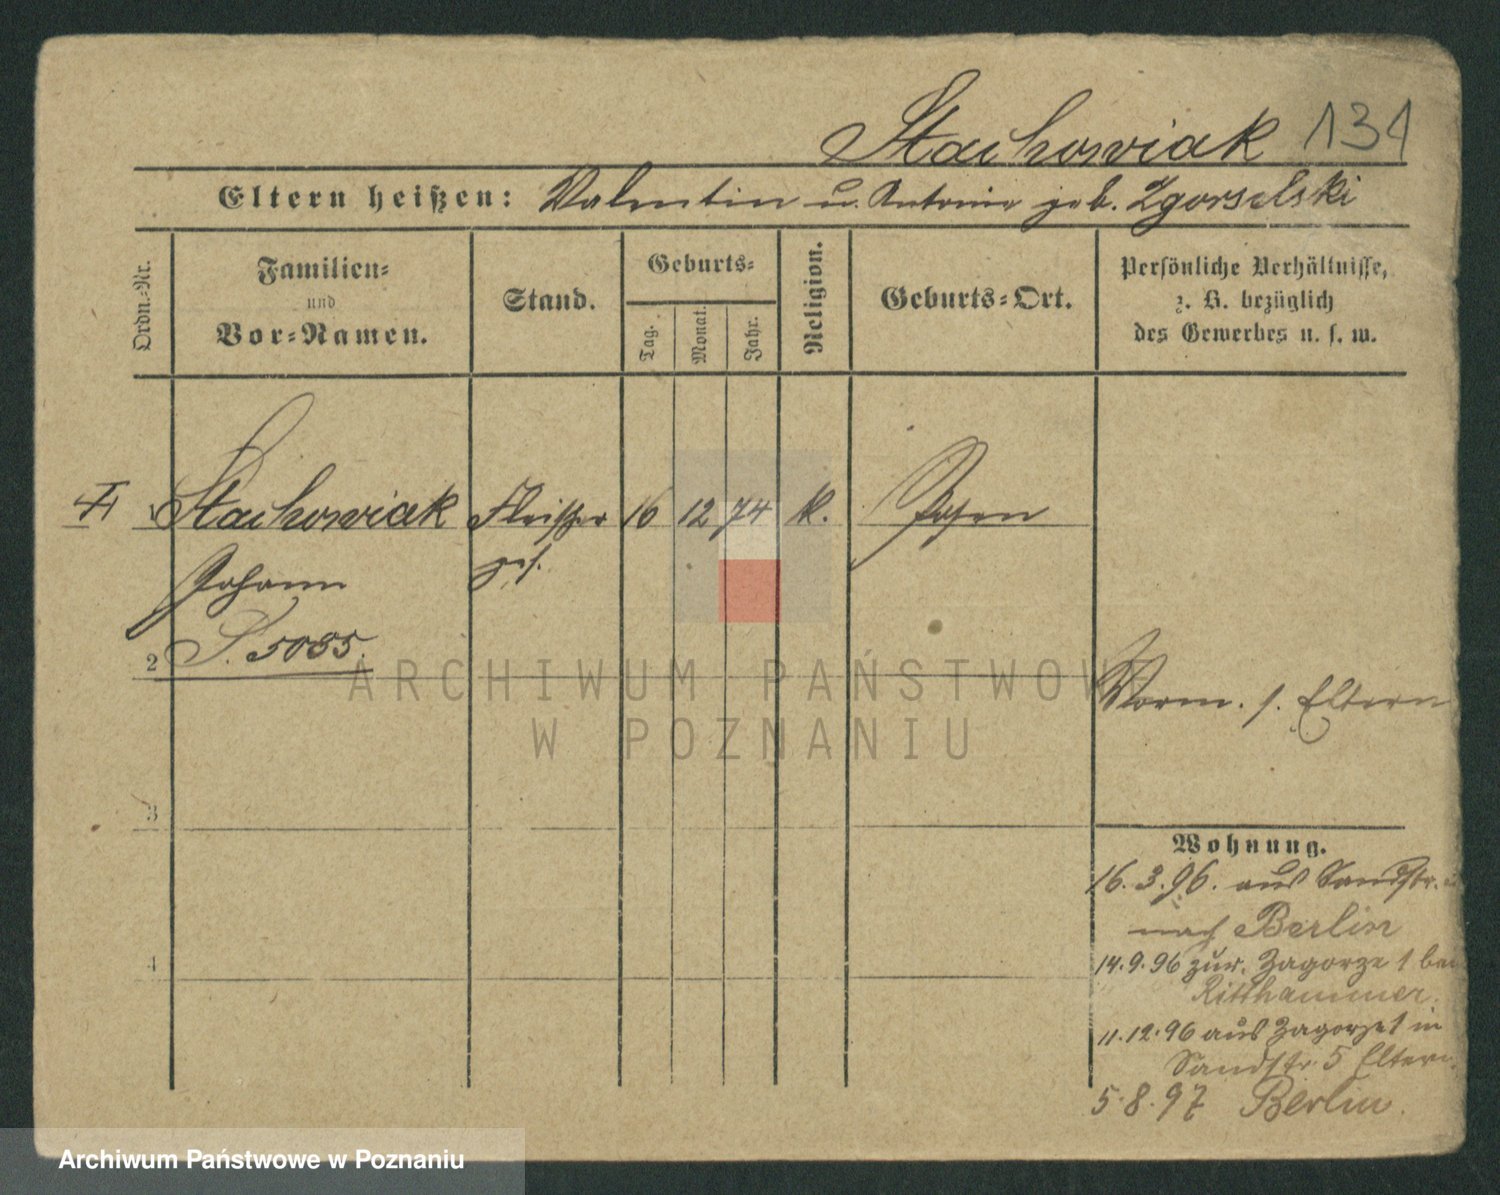 Stachowiak 131
Eltern heißen: Valentin u. Antonie geb. Zgorselski
Ordn.-Nr.
Familien-
und
Vor-Namen.
Stand.
Geburts-
Tag.
Monat.
Jahr.
Religion.
Geburts-Ort.
Persönliche Verhältnisse,
z. B. bezüglich
des Gewerbes u. s. w.
1 Stachowiak Fleischer 16 12 74 k. Posen
Johann ges.
S. 5085.
2
Vorm. s. Eltern
3
Wohnung.
16.3.96. aus Sandstr.
nach Berlin
4
14.9.96 zur. Zagorze 1 bei
Ritthammer.
11.12.96 aus Zagorze 1 in
Sandstr 5 Eltern.
5.8.97 Berlin.
ARCHIWUM PAŃSTWOWE
W POZNANIU
Archiwum Państwowe w Poznaniu